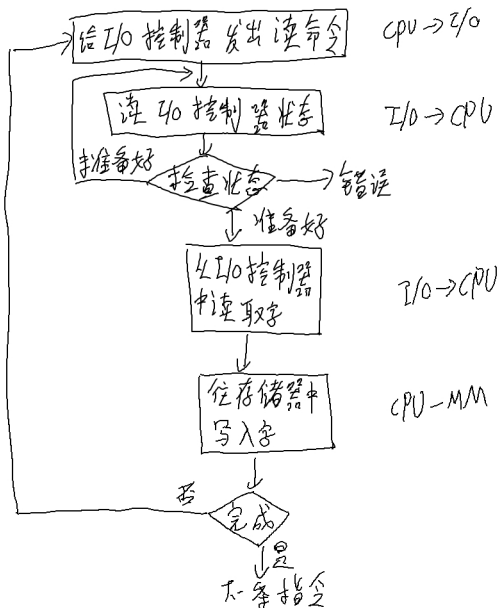 给I/O控制器发出读命令
CPU→I/O
读I/O控制器状态
I/O→CPU
未准备好
检查状态
错误
准备好
从I/O控制器
中读取字
I/O→CPU
往存储器中
写入字
CPU-MM
否
完成
是
下一条指令